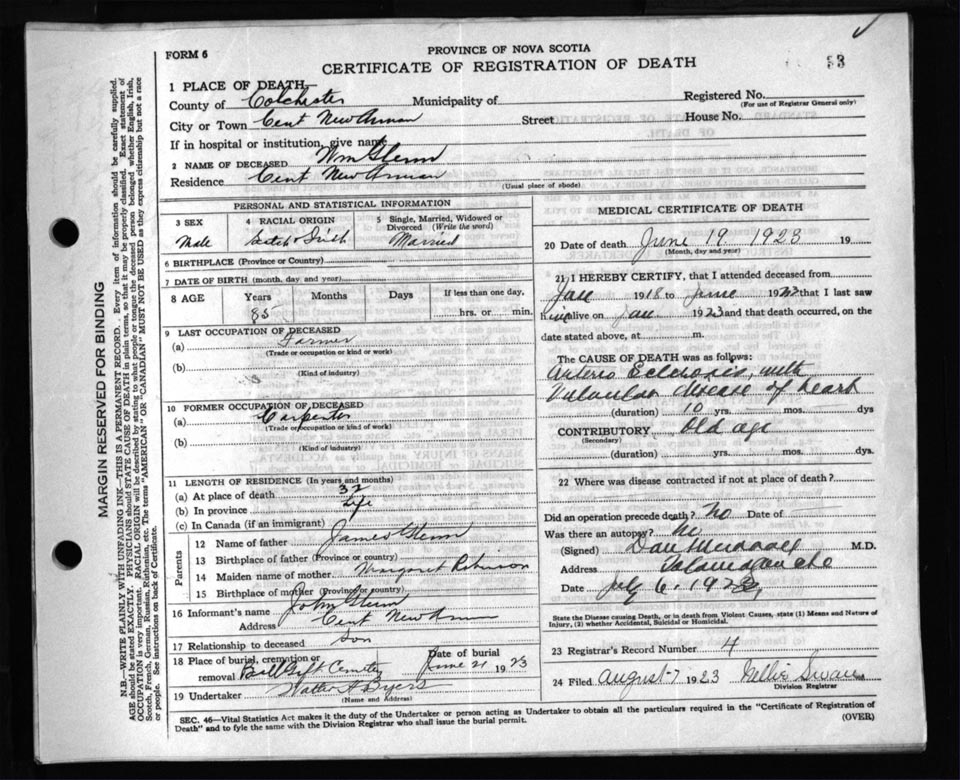 FORM 6
PROVINCE OF NOVA SCOTIA
CERTIFICATE OF REGISTRATION OF DEATH
1 PLACE OF DEATH
County of Colchester Municipality of Registered No.
(For use of Registrar General only)
City or Town Cent New Annan Street House No.
If in hospital or institution, give name
2 NAME OF DECEASED Wm Glenn
Residence Cent New Annan
(Usual place of abode)
PERSONAL AND STATISTICAL INFORMATION
3 SEX 4 RACIAL ORIGIN 5 Single, Married, Widowed or Divorced (Write the word)
Male Scotch Irish Married
6 BIRTHPLACE (Province or Country)
7 DATE OF BIRTH (month, day and year)
8 AGE Years Months Days If less than one day,
85 hrs. or min.
9 LAST OCCUPATION OF DECEASED
(a) Farmer
(Trade or occupation or kind of work)
(b)
(Kind of industry)
10 FORMER OCCUPATION OF DECEASED
(a) Carpenter
(Trade or occupation or kind of work)
(b)
(Kind of industry)
11 LENGTH OF RESIDENCE (In years and months)
(a) At place of death 32
(b) In province Life
(c) In Canada (if an immigrant)
Parents
12 Name of father James Glenn
13 Birthplace of father (Province or country)
14 Maiden name of mother Margaret Robinson
15 Birthplace of mother (Province or country)
16 Informant's name John Glenn
Address Cent New Annan
17 Relationship to deceased Son
18 Place of burial, cremation or removal Cemetery Date of burial June 21 1923
19 Undertaker Walter Byers
(Name and Address)
MEDICAL CERTIFICATE OF DEATH
20 Date of death June 19 1923 19
(Month, day and year)
21 I HEREBY CERTIFY, that I attended deceased from
Jan 1918 to June 19 that I last saw
him alive on Jan 1923 and that death occurred, on the
date stated above, at m.
The CAUSE OF DEATH was as follows:
Arterio Sclerosis, with
Valvular disease of heart
(duration) 10 yrs. mos. dys
CONTRIBUTORY Old age
(Secondary)
(duration) yrs. mos. dys.
22 Where was disease contracted if not at place of death?
Did an operation precede death? No Date of
Was there an autopsy? No
(Signed) Dan M.D.
Address Tatamagouche
Date July 6, 1923
State the Disease causing Death, or in death from Violent Causes, state (1) Means and Nature of Injury, (2) whether Accidental, Suicidal or Homicidal.
23 Registrar's Record Number 4
24 Filed August 7 1923 Nellie Swan
Division Registrar
SEC. 46—Vital Statistics Act makes it the duty of the Undertaker or person acting as Undertaker to obtain all the particulars required in the "Certificate of Registration of
Death" and to fyle the same with the Division Registrar who shall issue the burial permit.
(OVER)
MARGIN RESERVED FOR BINDING
N.B.—WRITE PLAINLY WITH UNFADING INK—THIS IS A PERMANENT RECORD. Every item of information should be carefully supplied.
AGE should be stated EXACTLY. PHYSICIANS should STATE CAUSE OF DEATH in plain terms, so that it may be properly classified. Exact statement of
OCCUPATION is very important. RACIAL ORIGIN will be described by stating to what people or tongue the deceased person belonged whether English, Irish,
Scotch, French, German, Russian, Ruthenian, etc. The terms "AMERICAN" or "CANADIAN" MUST NOT BE USED as they express citizenship but not a race
or people. See instructions on back of Certificate.